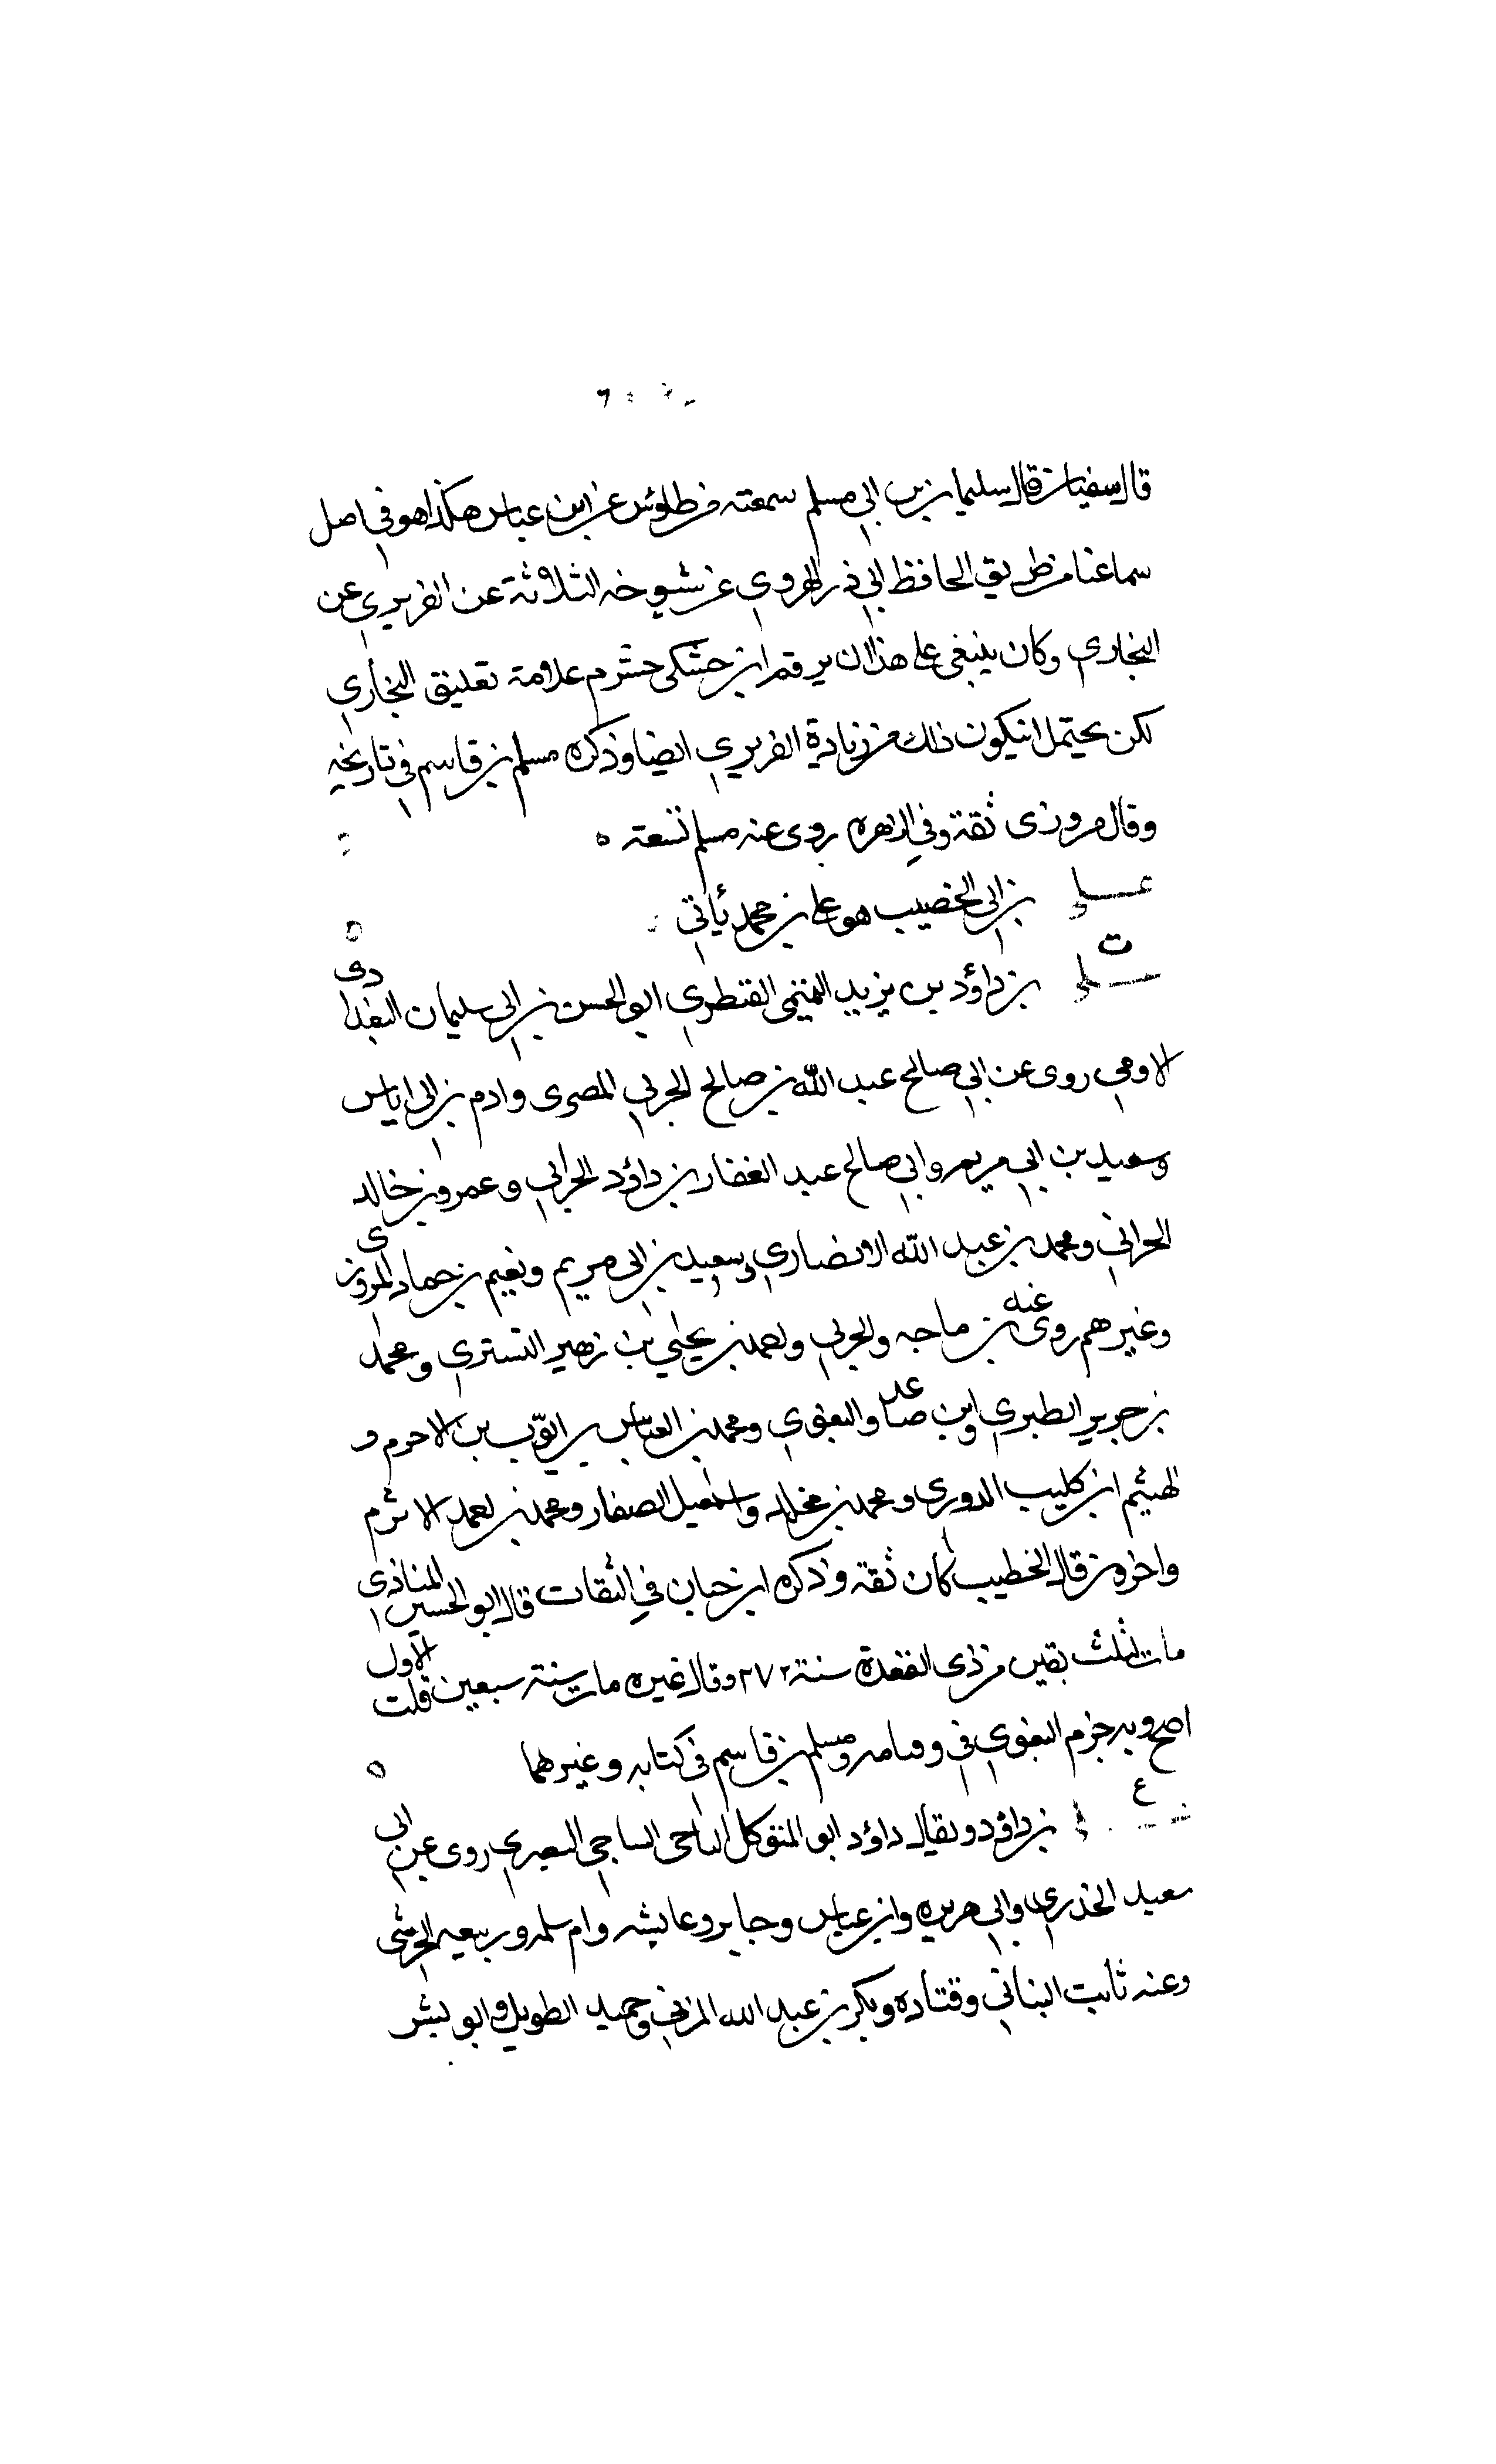 قال سفيان قال سليمان بن ابي مسلم سمعته من طاوس عن ابن عباس هكذا هو في اصل
سماعنا من طريق الحافظ ابي ذر الهروي عن شيوخه الثلاثة عن الفربري عن
البخاري وكان ينبغي على هذا ان يرقم ابن خشرم علامة تعليق البخاري
لكن يحتمل ان يكون ذلك من زيادة الفربري ايضا وذكره مسلم بن قاسم في تاريخه
وقال مروزى ثقة وفي الزهره روى عنه مسلم تسعة
علي بن ابي الخصيب هو علي بن محمد ياتي
ت
علي بن داؤد بن يزيد التميمى القنطري ابو الحسن بن ابي سليمان البغدادى
الادمي روى عن ابي صالح عبد الله بن صالح الحربي المصرى وادم بن ابي اياس
وسعيد بن ابي مريم وابي صالح عبد الغفار بن داؤد الحراني وعمرو بن خالد
الحراني ومحمد بن عبد الله الانصاري وسعيد بن ابي مريم ونعيم بن حماد المروزى
وغيرهم روى عنه بن ماجه والحربي واحمد بن يحيي بن زهير التستري ومحمد
بن جرير الطبري وابن صاعد والبغوي ومحمد بن العباس بن ايوب بن الاخرم و
الهيثم ابن كليب الدوري ومحمد بن مخلد واسمعيل الصفار ومحمد بن احمد الاثرم
واخرون قال الخطيب كان ثقة وذكره ابن حبان في الثقات قال ابو الحسين المنادى
مات لثلث بقين من ذى القعدة سنة ٢٧٢ وقال غيره مات سنة سبعين قلت الاول
اصح وبه جزم البغوي في وفيامه ومسلم بن قاسم في كتابه وغيرهما
ع
علي بن داؤد ويقال داؤد ابو المتوكل الناجى الساجي البصري روى عن ابي
سعيد الخدري وابي هريره وابن عباس وجابر وعايشه وام سلمه وربيعه الجرشى
وعنه ثابت البناني وقتاده وبكر بن عبد الله المزني وحميد الطويل وابو بشر